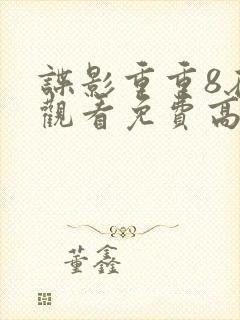 諜影重重8
觀看免費高
董鑫